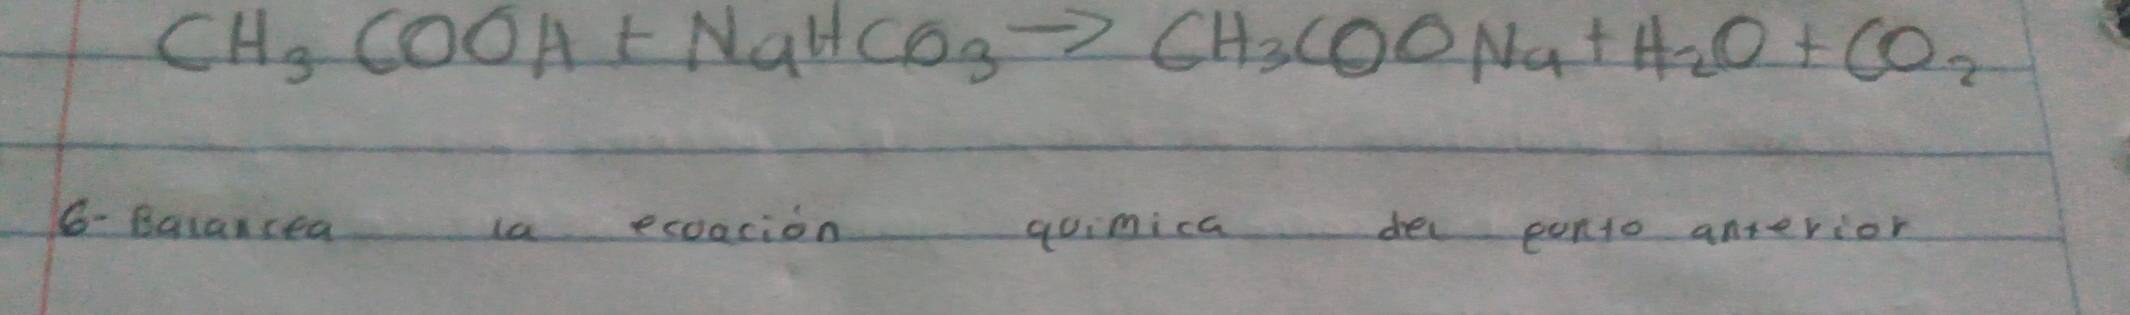 CH₃COOH + NaHCO₃ → CH₃COONa + H₂O + CO₂
6- Balancea la ecuación quimica del punto anterior